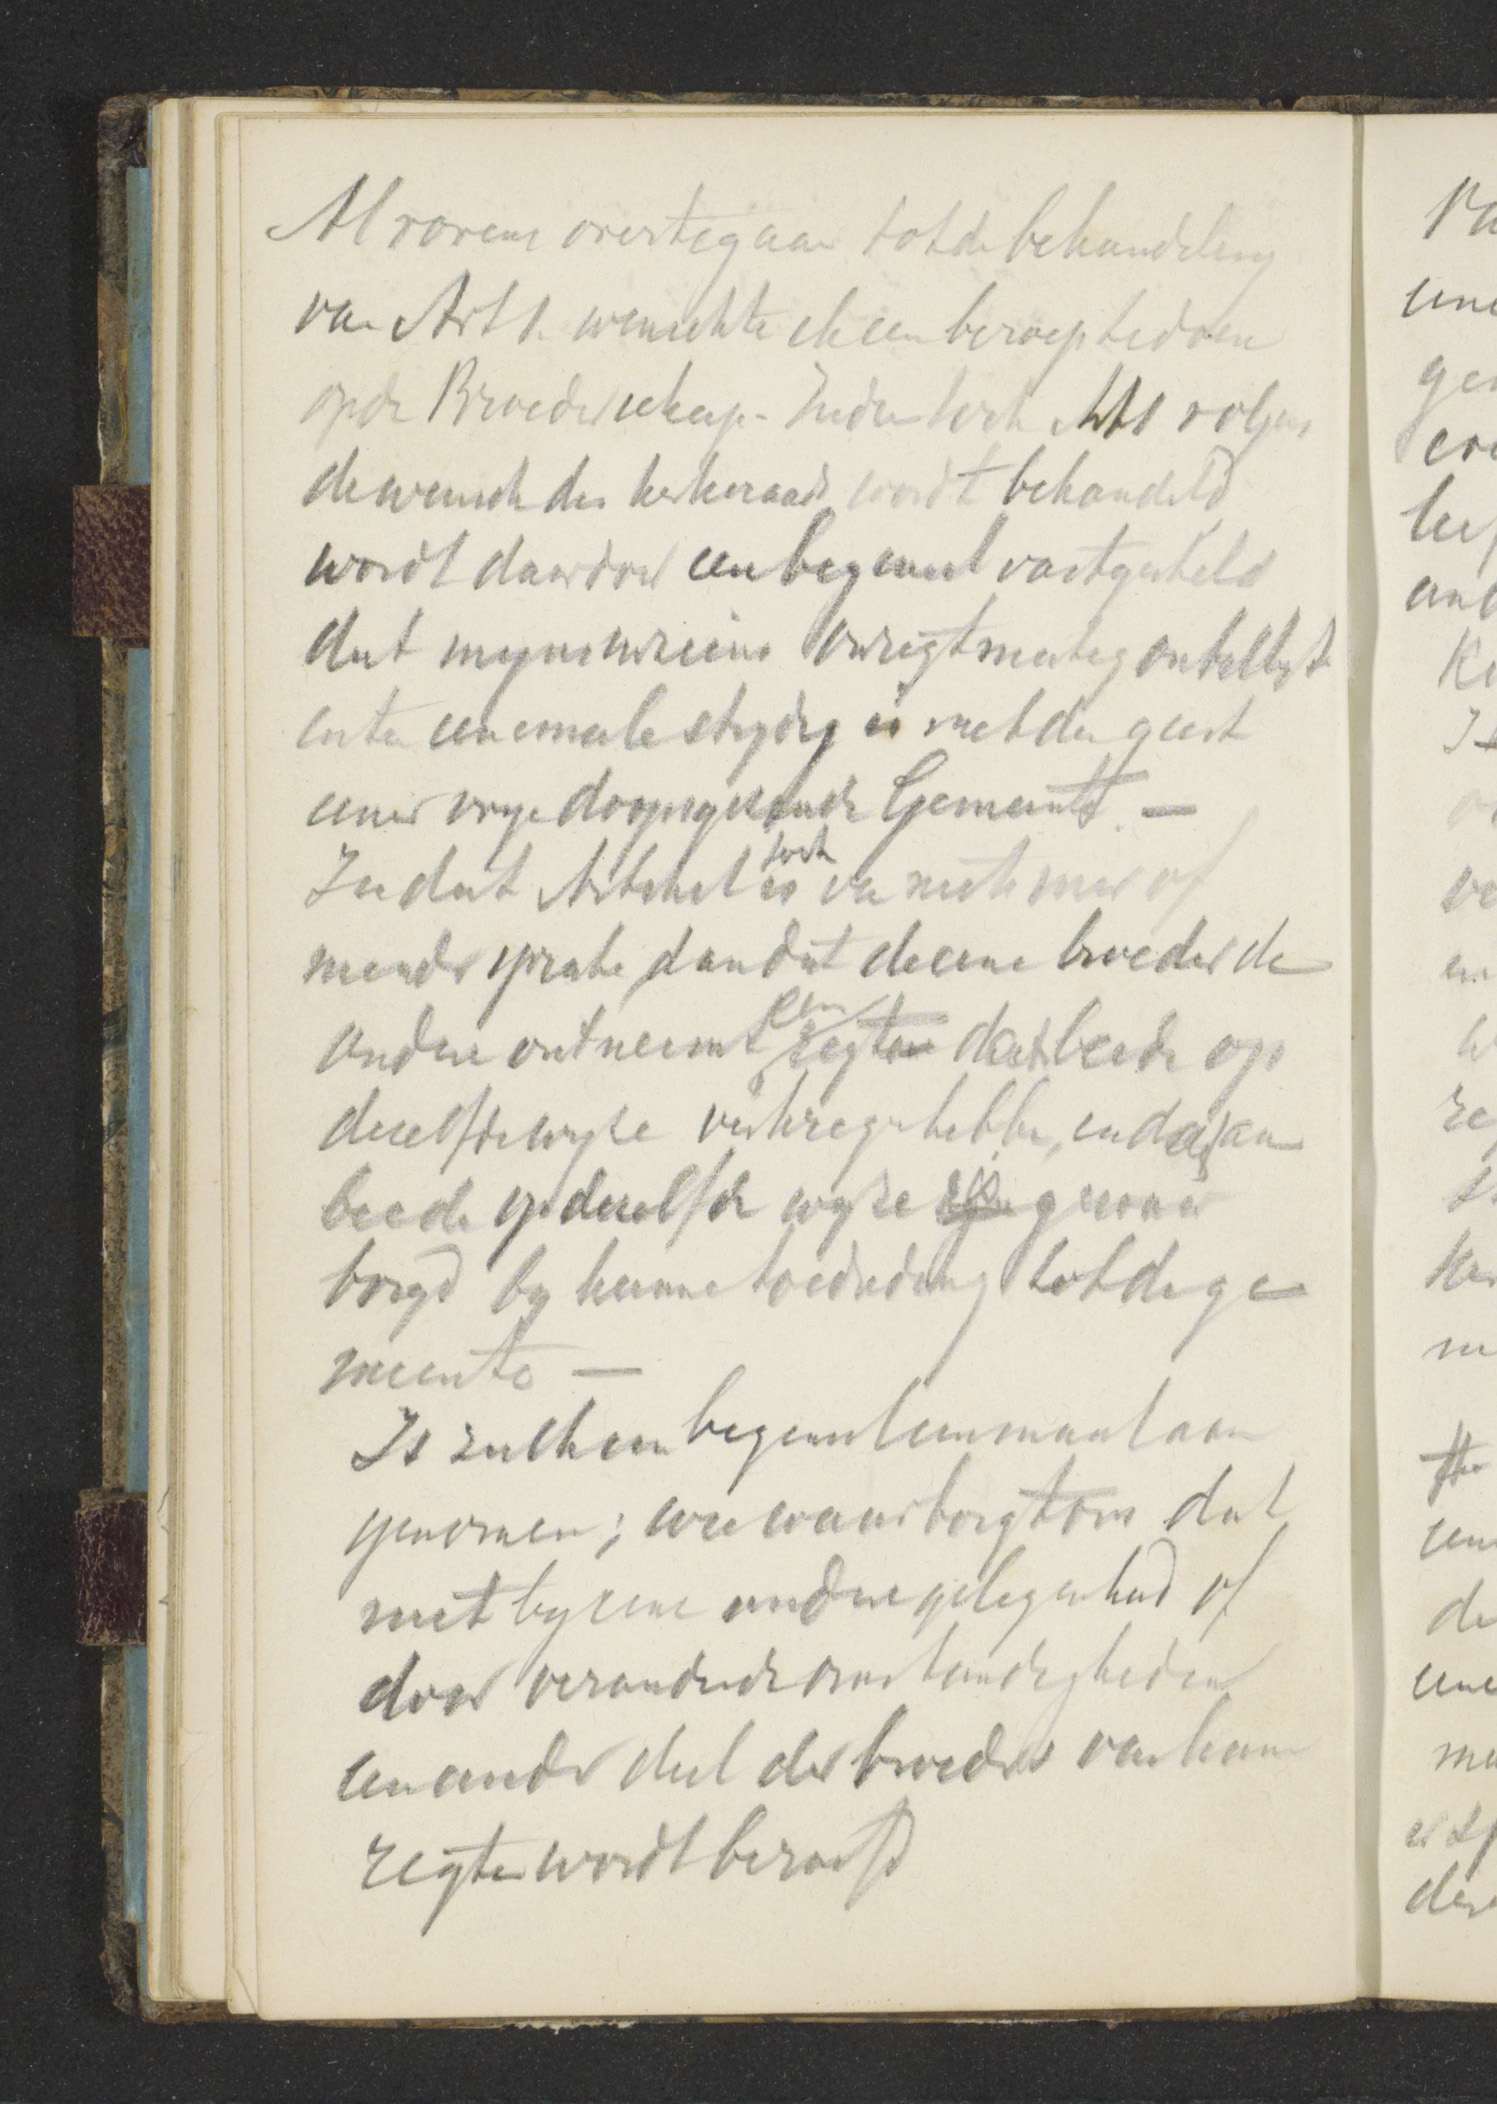 Alvorens overtegaan tot de behandeling
van Art 1. wenschte ik een beroep te doen
op de Broederschap - Indien toch Art 1 volgens
de wensch des kerkeraads wordt behandeld
wordt daardoor een beginsel vastgesteld
dat myns inziens onregtmatig onbillyk
en ten eenemale strydig is met den geest
eener vrye doopsgezinde Gemeente. —
In dat Artikel is toch van niets meer of
minder sprake dan dat de eene broeder de
andere ontneemt een regt dat beide op
dezelfde wyze verkregen hebben, en dat aan
beide op dezelfde wyze is gewaar
borgd by hunne toetreding tot de ge
meente —
Is zulk een beginsel eenmaal aan
genomen; wie waarborgt ons dat
niet by eene andere gelegenheid of
door veranderde omstandigheden
een ander deel der broeders van hun
regten wordt beroofd